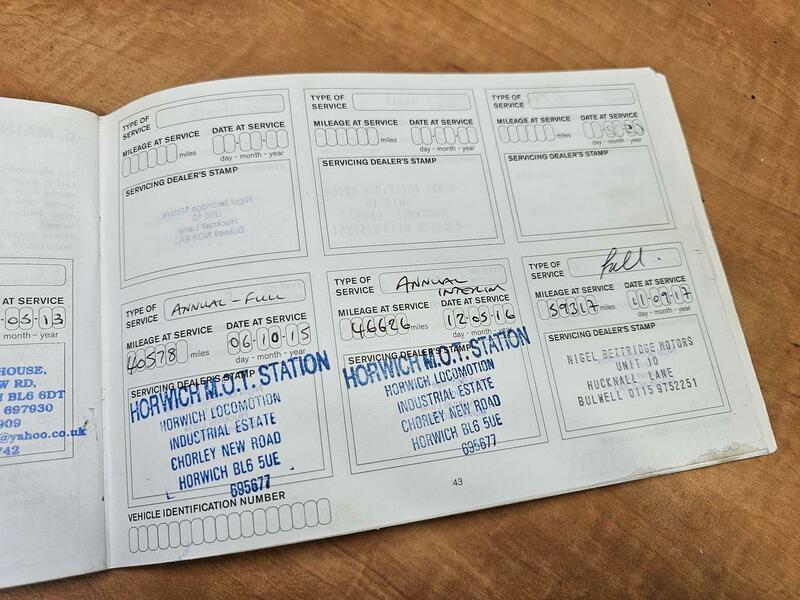 TYPE OF
SERVICE
MILEAGE AT SERVICE
miles
DATE AT SERVICE
day - month - year
SERVICING DEALER'S STAMP
Nigel Bettridge Motors
Unit 10
Hucknall Lane
Bulwell NG6 8AJ
TYPE OF
SERVICE
MILEAGE AT SERVICE
miles
DATE AT SERVICE
day - month - year
SERVICING DEALER'S STAMP
TYPE OF
SERVICE
MILEAGE AT SERVICE
miles
DATE AT SERVICE
day - month - year
SERVICING DEALER'S STAMP
AT SERVICE
-05-13
month - year
STAMP
HOUSE,
W RD,
H BL6 6DT
697930
909
@yahoo.co.uk
742
TYPE OF
SERVICE
ANNUAL - FULL
MILEAGE AT SERVICE
40578 miles
DATE AT SERVICE
06-10-15
day - month - year
SERVICING DEALER'S STAMP
HORWICH M.O.T. STATION
HORWICH LOCOMOTION
INDUSTRIAL ESTATE
CHORLEY NEW ROAD
HORWICH BL6 5UE
695677
TYPE OF
SERVICE
ANNUAL
INTERIM
MILEAGE AT SERVICE
46626 miles
DATE AT SERVICE
12-05-16
day - month - year
SERVICING DEALER'S STAMP
HORWICH M.O.T. STATION
HORWICH LOCOMOTION
INDUSTRIAL ESTATE
CHORLEY NEW ROAD
HORWICH BL6 5UE
695677
TYPE OF
SERVICE
full.
MILEAGE AT SERVICE
59317 miles
DATE AT SERVICE
11-09-17
day - month - year
SERVICING DEALER'S STAMP
NIGEL BETTRIDGE MOTORS
UNIT 10
HUCKNALL LANE
BULWELL 0115 9752251
VEHICLE IDENTIFICATION NUMBER
43